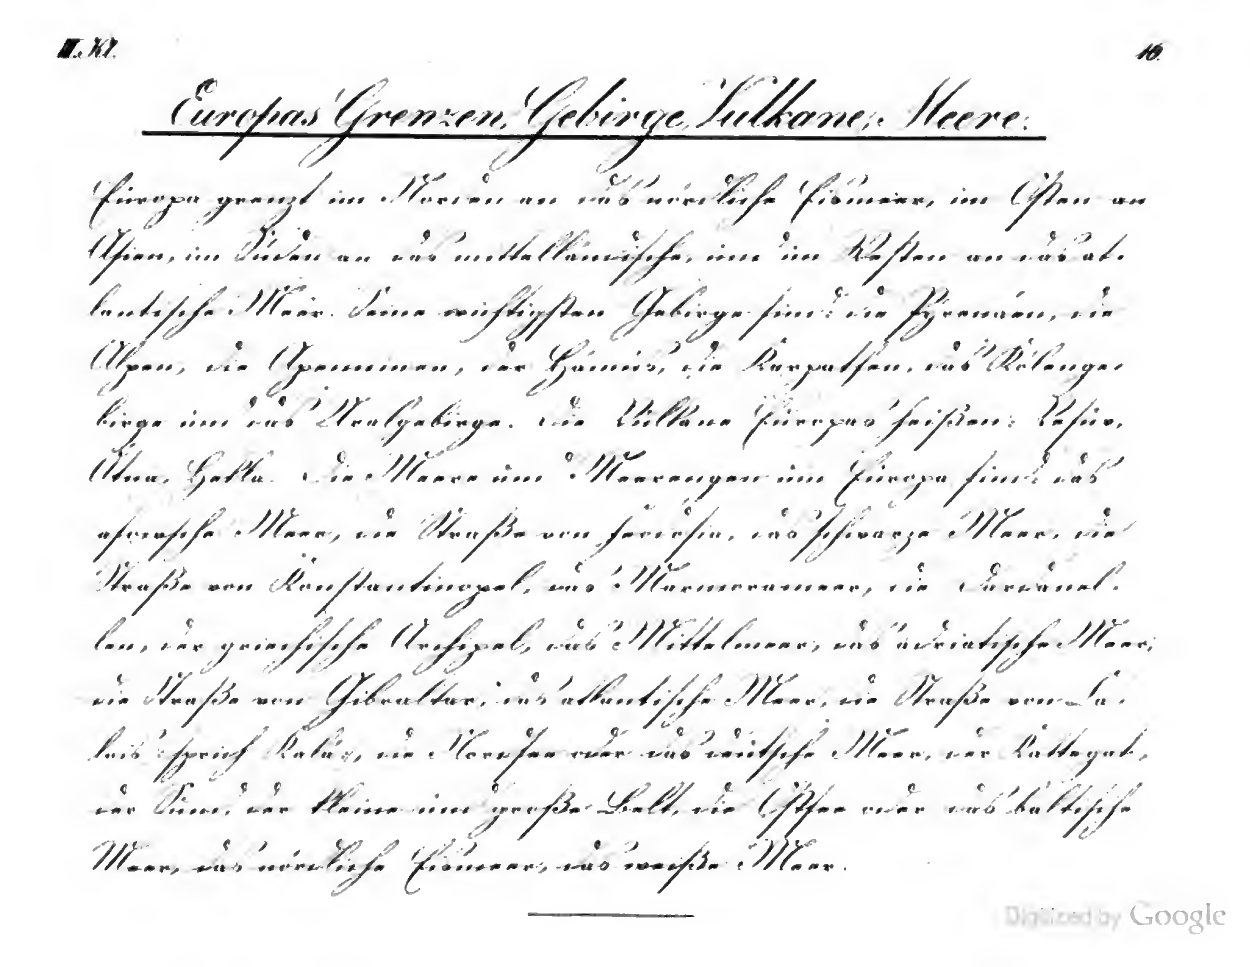 III. Kl. 16.
Europas Grenzen, Gebirge, Vulkane, Meere.
Europa grenzt im Norden an das nördliche Eismeer, im Osten an
Asien, im Süden an das mittelländische, und im Westen an das at-
lantische Meer. Seine wichtigsten Gebirge sind: die Pyrenäen, die
Alpen, die Apenninen, der Hämus, die Karpathen, das Kölenge-
birge und das Uralgebirge. Die Vulkane Europas heißen: Vesuv,
Ätna, Hekla. Die Meere und Meerengen um Europa sind: das
asowsche Meer, die Straße von Feodosia, das schwarze Meer, die
Straße von Konstantinopel, das Marmorameer, die Dardanel-
len, der griechische Archipel, das Mittelmeer, das adriatische Meer,
die Straße von Gibraltar, das atlantische Meer, die Straße von Ca-
lais sprich Kaläs, die Nordsee oder das deutsche Meer, der Kattegat,
der Sund, der kleine und große Belt, die Ostsee oder das baltische
Meer, das nördliche Eismeer, das weiße Meer.
Digitized by Google